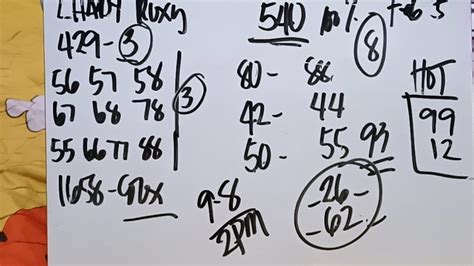 LHADY Roxy
540 100% Feb 5
429-3
8
56 57 58
67 68 78
3
55 66 77 88
1658-
80-88
42-44
50-55 93
HOT
99
12
9-8
2PM
-26-
-62-